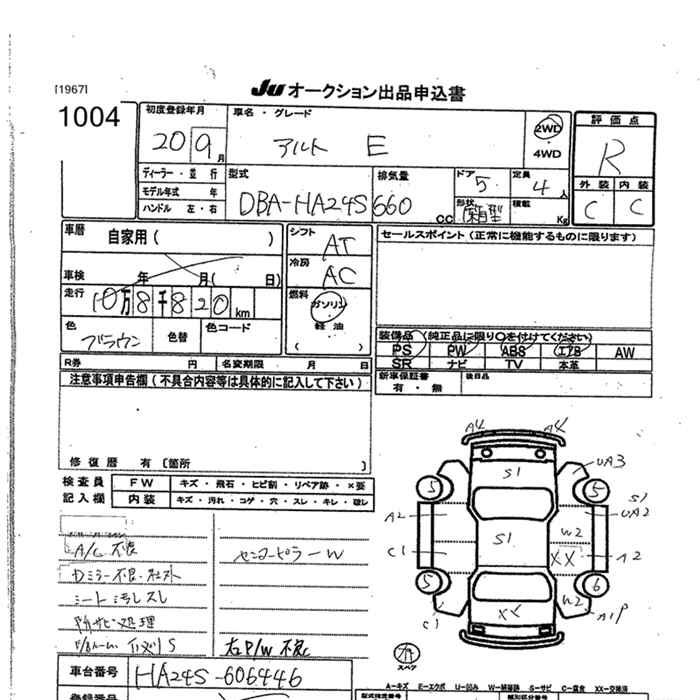 [1967]
JU オークション出品申込書
1004
初度登録年月
20 9月
車名・グレード
アルト E
2WD
4WD
評価点
R
外装 内装
C C
ディーラー・並行
モデル年式 年
ハンドル 左・右
型式
DBA-HA24S
排気量
660 cc
ドア
5
定員
4人
形状
箱型
積載
Kg
車歴
自家用( )
車検 年 月( 日)
走行
10万8千820km
色
ブラウン
色替
色コード
シフト
AT
冷房
AC
燃料
ガソリン
軽油
( )
セールスポイント(正常に機能するものに限ります)
装備品(純正品に限り○を付けてください)
PS PW ABS エアB AW
SR ナビ TV 本革
新車保証書
有・無
後日品
R券 円 名変期限 月 日
注意事項申告欄(不具合内容等は具体的に記入して下さい)
修復歴 有〔箇所 〕
検査員
記入欄
FW キズ・飛石・ヒビ割・リペア跡・×要
内装 キズ・汚れ・コゲ・穴・スレ・キレ・破レ
A/C不良
センターピラーW
シート汚レスレ
サビ処理
右P/W不良
車台番号 HA24S-606446
A4 A4
S1
UA3
5 5
S1
A2 UA2
W2
S1
C1 XX A2
5 6
W2
XX
C1 A1P
スペア
A-キズ E-エクボ U-凹み
XX-交換済